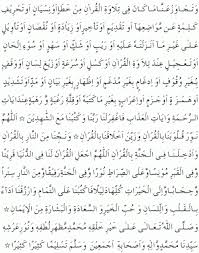 وَتَجَاوَزْ عَنَّا مَا كَانَ فِي تِلَاوَةِ الْقُرْآنِ مِنْ خَطَإٍ أَوْ نِسْيَانٍ أَوْ تَحْرِيفِ
كَلِمَةٍ عَنْ مَوَاضِعِهَا أَوْ تَقْدِيمٍ أَوْ تَأْخِيرٍ أَوْ زِيَادَةٍ أَوْ نُقْصَانٍ أَوْ تَأْوِيلٍ
عَلَى غَيْرِ مَا أَنْزَلْتَهُ عَلَيْهِ أَوْ رَيْبٍ أَوْ شَكٍّ أَوْ سَهْوٍ أَوْ سُوءِ إِلْحَانٍ
أَوْ تَعْجِيلٍ عِنْدَ تِلَاوَةِ الْقُرْآنِ أَوْ كَسَلٍ أَوْ سُرْعَةٍ أَوْ زَيْغِ لِسَانٍ أَوْ وَقْفٍ
بِغَيْرِ وُقُوفٍ أَوْ إِدْغَامٍ بِغَيْرِ مُدْغَمٍ أَوْ إِظْهَارٍ بِغَيْرِ بَيَانٍ أَوْ مَدٍّ أَوْ تَشْدِيدٍ
أَوْ هَمْزَةٍ أَوْ جَزْمٍ أَوْ إِعْرَابٍ بِغَيْرِ مَا كَتَبَهُ أَوْ قِلَّةِ رَغْبَةٍ وَرَهْبَةٍ عِنْدَ آيَاتِ
الرَّحْمَةِ وَآيَاتِ الْعَذَابِ فَاغْفِرْ لَنَا رَبَّنَا وَاكْتُبْنَا مَعَ الشَّاهِدِينَ ۞ اَللّٰهُمَّ
نَوِّرْ قُلُوبَنَا بِالْقُرْآنِ وَزَيِّنْ أَخْلَاقَنَا بِالْقُرْآنِ ۞ وَنَجِّنَا مِنَ النَّارِ بِالْقُرْآنِ
وَأَدْخِلْنَا فِي الْجَنَّةِ بِالْقُرْآنِ اَللّٰهُمَّ اجْعَلِ الْقُرْآنَ لَنَا فِي الدُّنْيَا قَرِينًا
وَفِي الْقَبْرِ مُونِسًا وَعَلَى الصِّرَاطِ نُورًا وَفِي الْجَنَّةِ رَفِيقًا وَمِنَ النَّارِ سِتْرًا
وَحِجَابًا وَإِلَى الْخَيْرَاتِ كُلِّهَا دَلِيلًا فَاكْتُبْنَا عَلَى التَّمَامِ وَارْزُقْنَا أَدَاءً
بِالْقَلْبِ وَاللِّسَانِ وَحُبِّ الْخَيْرِ وَالسَّعَادَةِ وَالْبَشَارَةِ مِنَ الْإِيمَانِ ۞
وَصَلَّى اللهُ تَعَالَى عَلَى خَيْرِ خَلْقِهِ مُحَمَّدٍ مَظْهَرِ لُطْفِهِ وَنُورِ عَرْشِهِ
سَيِّدِنَا مُحَمَّدٍ وَآلِهِ وَأَصْحَابِهِ أَجْمَعِينَ ۞ وَسَلَّمَ تَسْلِيمًا كَثِيرًا كَثِيرًا ۞